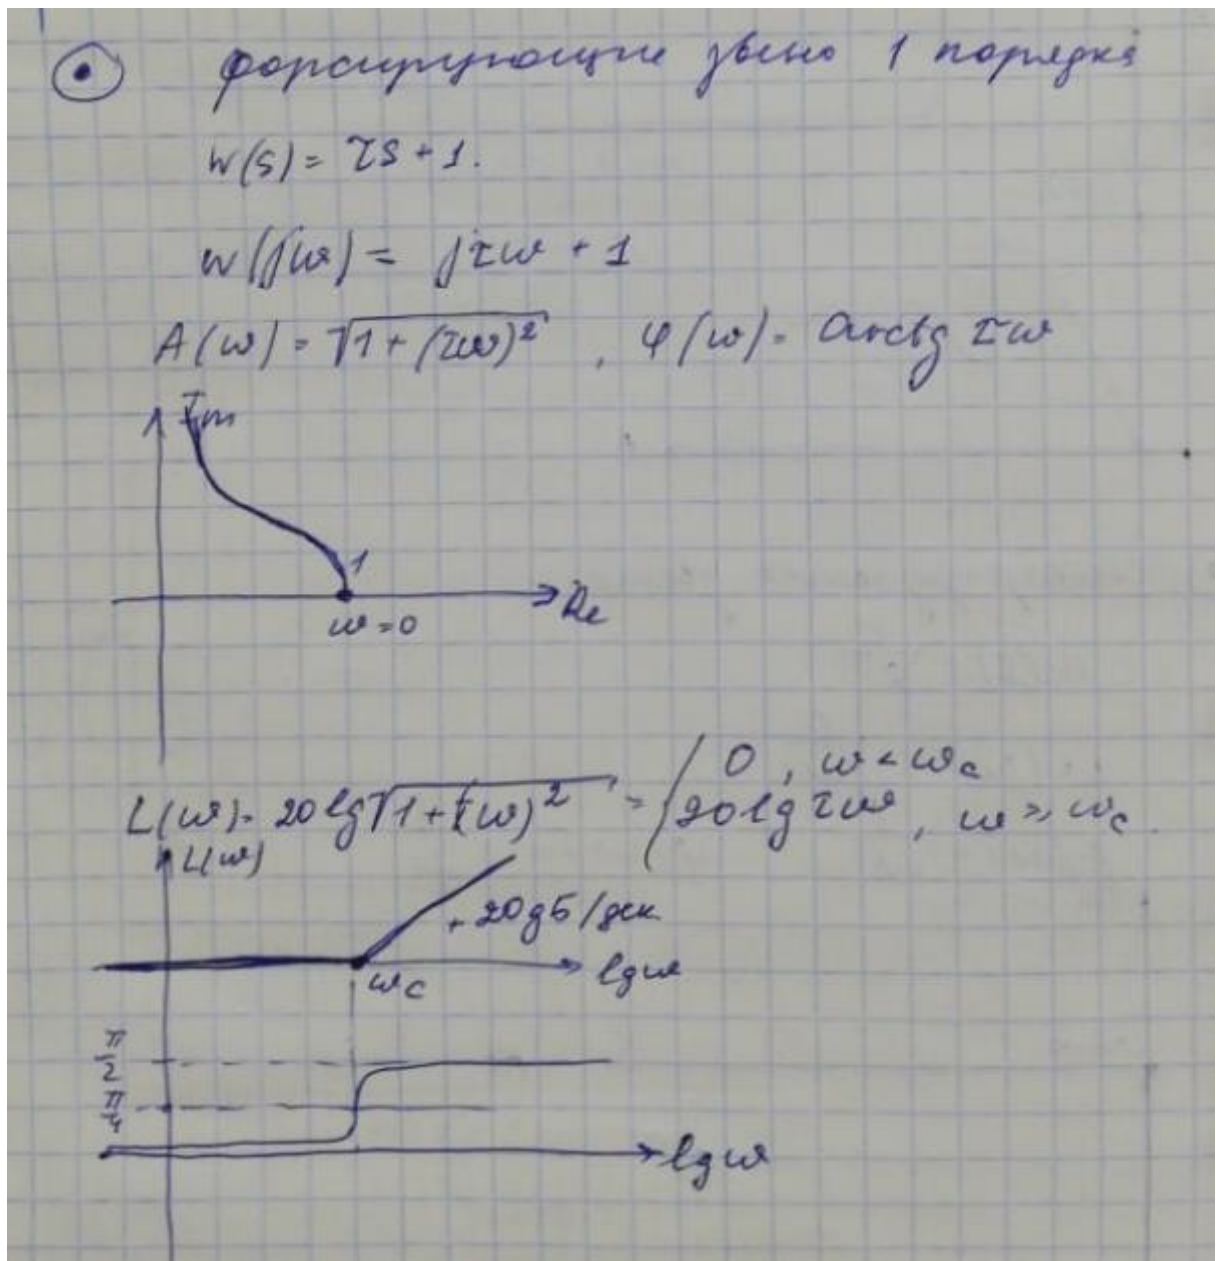 форсирующие звено 1 порядка
W(s) = τs + 1.
W(jω) = jτω + 1
A(ω) = √1 + (τω)² , φ(ω) = arctg τω
Im
1
Re
ω = 0
L(ω) = 20 lg √1 + (τω)² = { 0 , ω < ωc
20 lg τω , ω ≥ ωc.
L(ω)
+20 дБ/дек
ωc
lg ω
π/2
π/4
lg ω